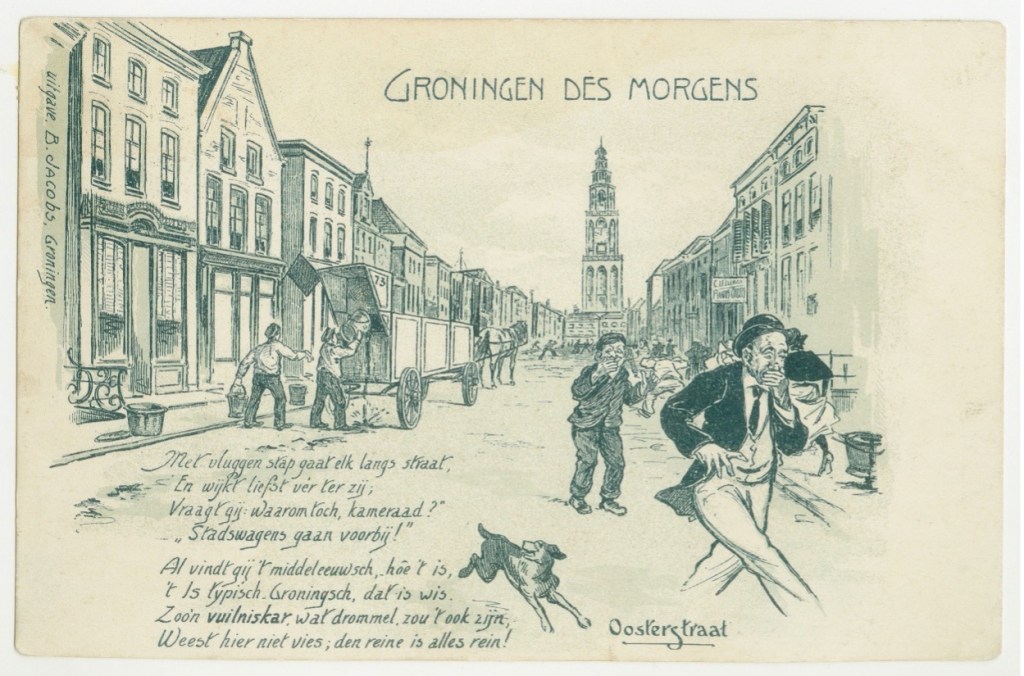 GRONINGEN DES MORGENS
uitgave. B. JACObs, Groningen.
73
Met vluggen stap gaat elk langs straat,
En wijkt liefst ver ter zij;
Vraagt gij: waarom toch, kameraad?"
„Stadswagens gaan voorbij!"
Al vindt gij 't middeleeuwsch, hôe 't is,
't Is typisch Groningsch, dat is wis.
Zoo'n vuilniskar, wat drommel, zou 't ook zijn,
Weest hier niet vies; den reine is alles rein!
Oosterstraat